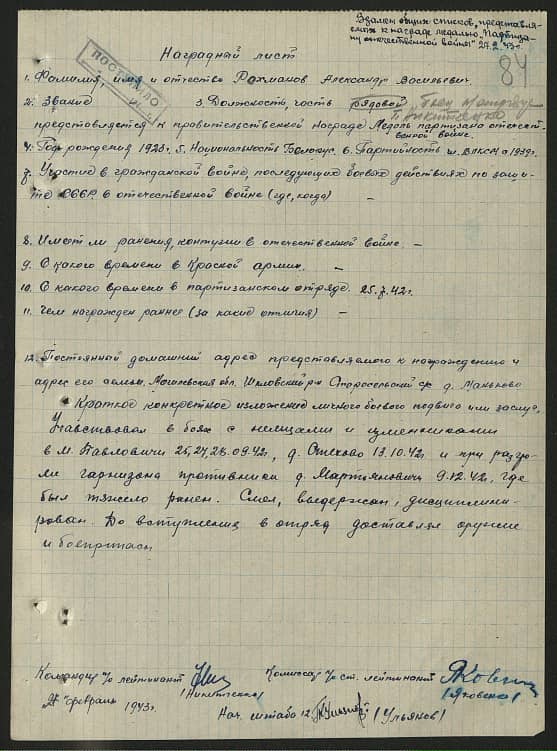 Эдален общих списков, представля-
емых к награде медалью "Партиза-
ну отечественной войны" 27.2.43г.
84
ПОСТУПИЛО
Наградный лист
1. Фамилия, имя и отчество Рахманов Александр Васильевич.
2. Звание 3. Должность, часть рядовой
представляется к правительственной награде Медаль партизана отечест-
венной войне.
4. Год рождения 1923г. 5. Национальность Белорус. 6. Партийность чл. ВЛКСМ с 1939г.
7. Участие в гражданской войне, последующих боевых действиях по защи-
те СССР, в отечественной войне (где, когда) –
8. Имеет ли ранения, контузии в отечественной войне. –
9. С какого времени в Красной армии. –
10. С какого времени в партизанском отряде. 25.7.42г.
11. Чем награжден раннее (за какие отличия) –
12. Постоянный домашний адрес представляемого к награждению и
адрес его семьи. Могилевская обл. Шкловский р-н Старосельский с/с д. Маньково
Краткое конкретное изложение личного боевого подвига или заслуг.
Учавствовал в боях с немцами и изменниками
в м. Павловичи 25, 27, 28.09.42г, д. Стехово 13.10.42г и при разгро-
ме гарнизона противника д. Мартьяновичи 9.12.42г, где
был тяжело ранен. Смел, выдержан, дисциплини-
рован. До вступления в отряд доставлял оружие
и боепртасы
Командир п/о лейтинант Комиссар п/о ст. лейтинант
(Никитенко) (Яковенко)
27 "февраль 1943г. Нач. штаба 12 (Ульянов)